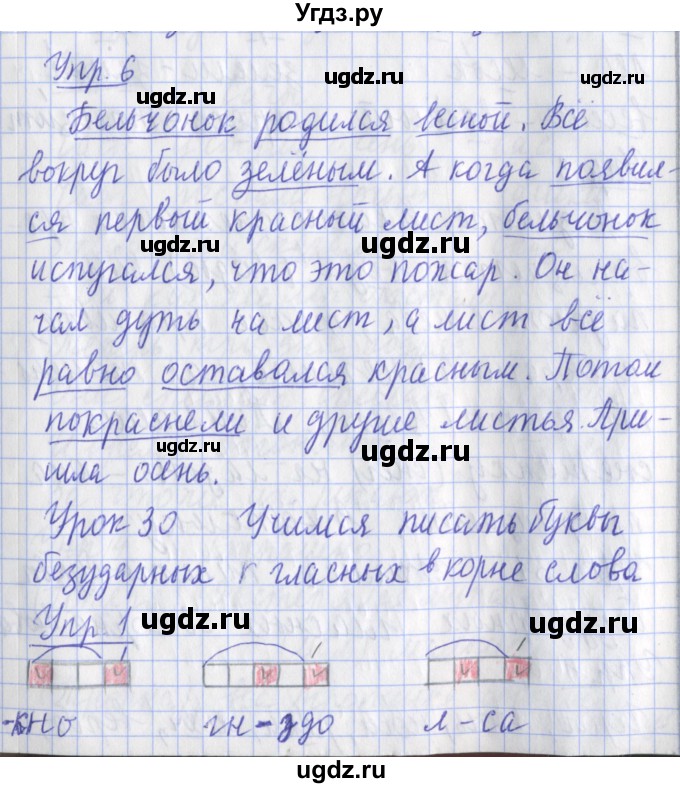 Угдз.ру
Упр. 6
ugdz.ru
ugdz.ru
Бельчонок родился весной. Всё
вокруг было зелёным. А когда появил-
ся первый красный лист, бельчонок
ugdz.ru
ugdz.ru
испугался, что это пожар. Он на-
чал дуть на лист, а лист всё
ugdz.ru
ugdz.ru
равно оставался красным. Потом
покраснели и другие листья. При-
ugdz.ru
ugdz.ru
шла осень.
Урок 30 Учимся писать буквы
безударных гласных в корне слова
ugdz.ru
ugdz.ru
Упр 1
-кно гн-здо л-са
ugdz.ru